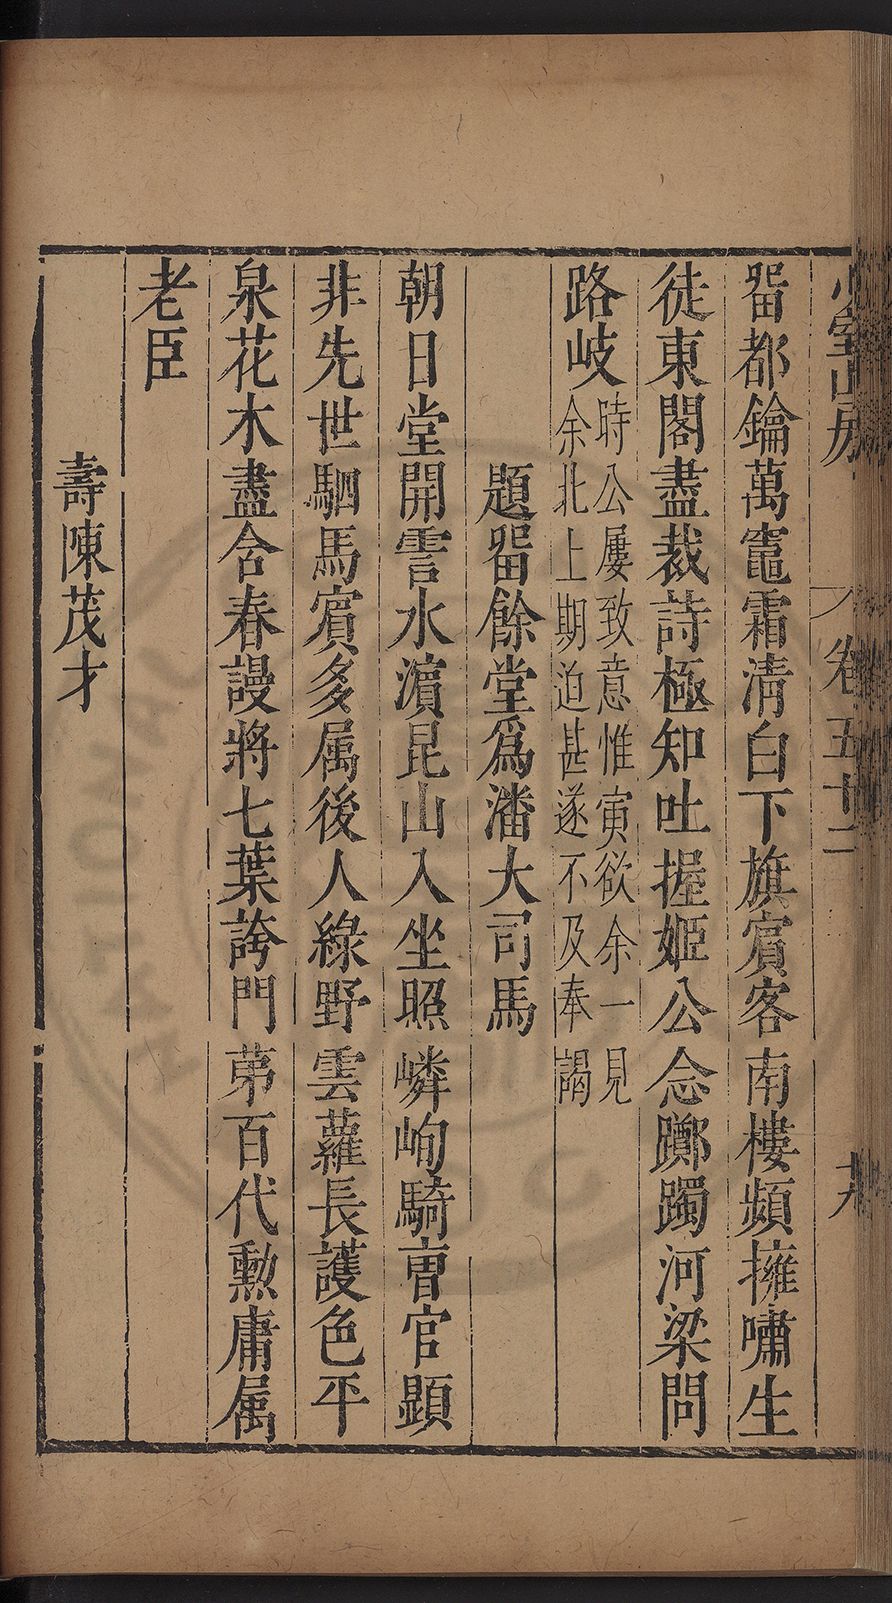 室山房 卷五十二 十九
畱都鑰萬竈霜清白下旗賓客南樓頻擁嘯生
徒東閣盡裁詩極知吐握姬公念躑躅河梁問
路岐時公屢致意惟寅欲余一見
余北上期迫甚遂不及奉謁
題畱餘堂爲潘大司馬
朝日堂開霅水濵昆山入坐照嶙峋騎曺官顯
非先世駟馬賔多属後人綠野雲蘿長護色平
泉花木盡含春謾將七葉誇門苐百代勲庸属
老臣
壽陳茂才